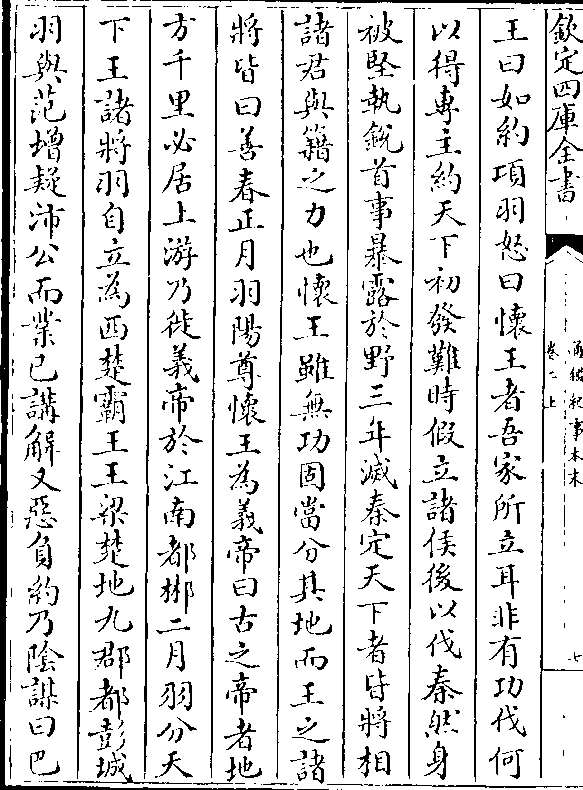 欽定四庫全書
通鑑紀事本末
卷二上
七
王曰如約項羽怒曰懷王者吾家所立耳非有功伐何
以得專主約天下初發難時假立諸侯後以伐秦然身
被堅執銳首事暴露於野三年滅秦定天下者皆將相
諸君與籍之力也懷王雖無功固當分其地而王之諸
將皆曰善春正月羽陽尊懷王為義帝曰古之帝者地
方千里必居上游乃徙義帝於江南都郴二月羽分天
下王諸將羽自立為西楚霸王王梁楚地九郡都彭城
羽與范增疑沛公而業已講解又惡負約乃陰謀曰巴